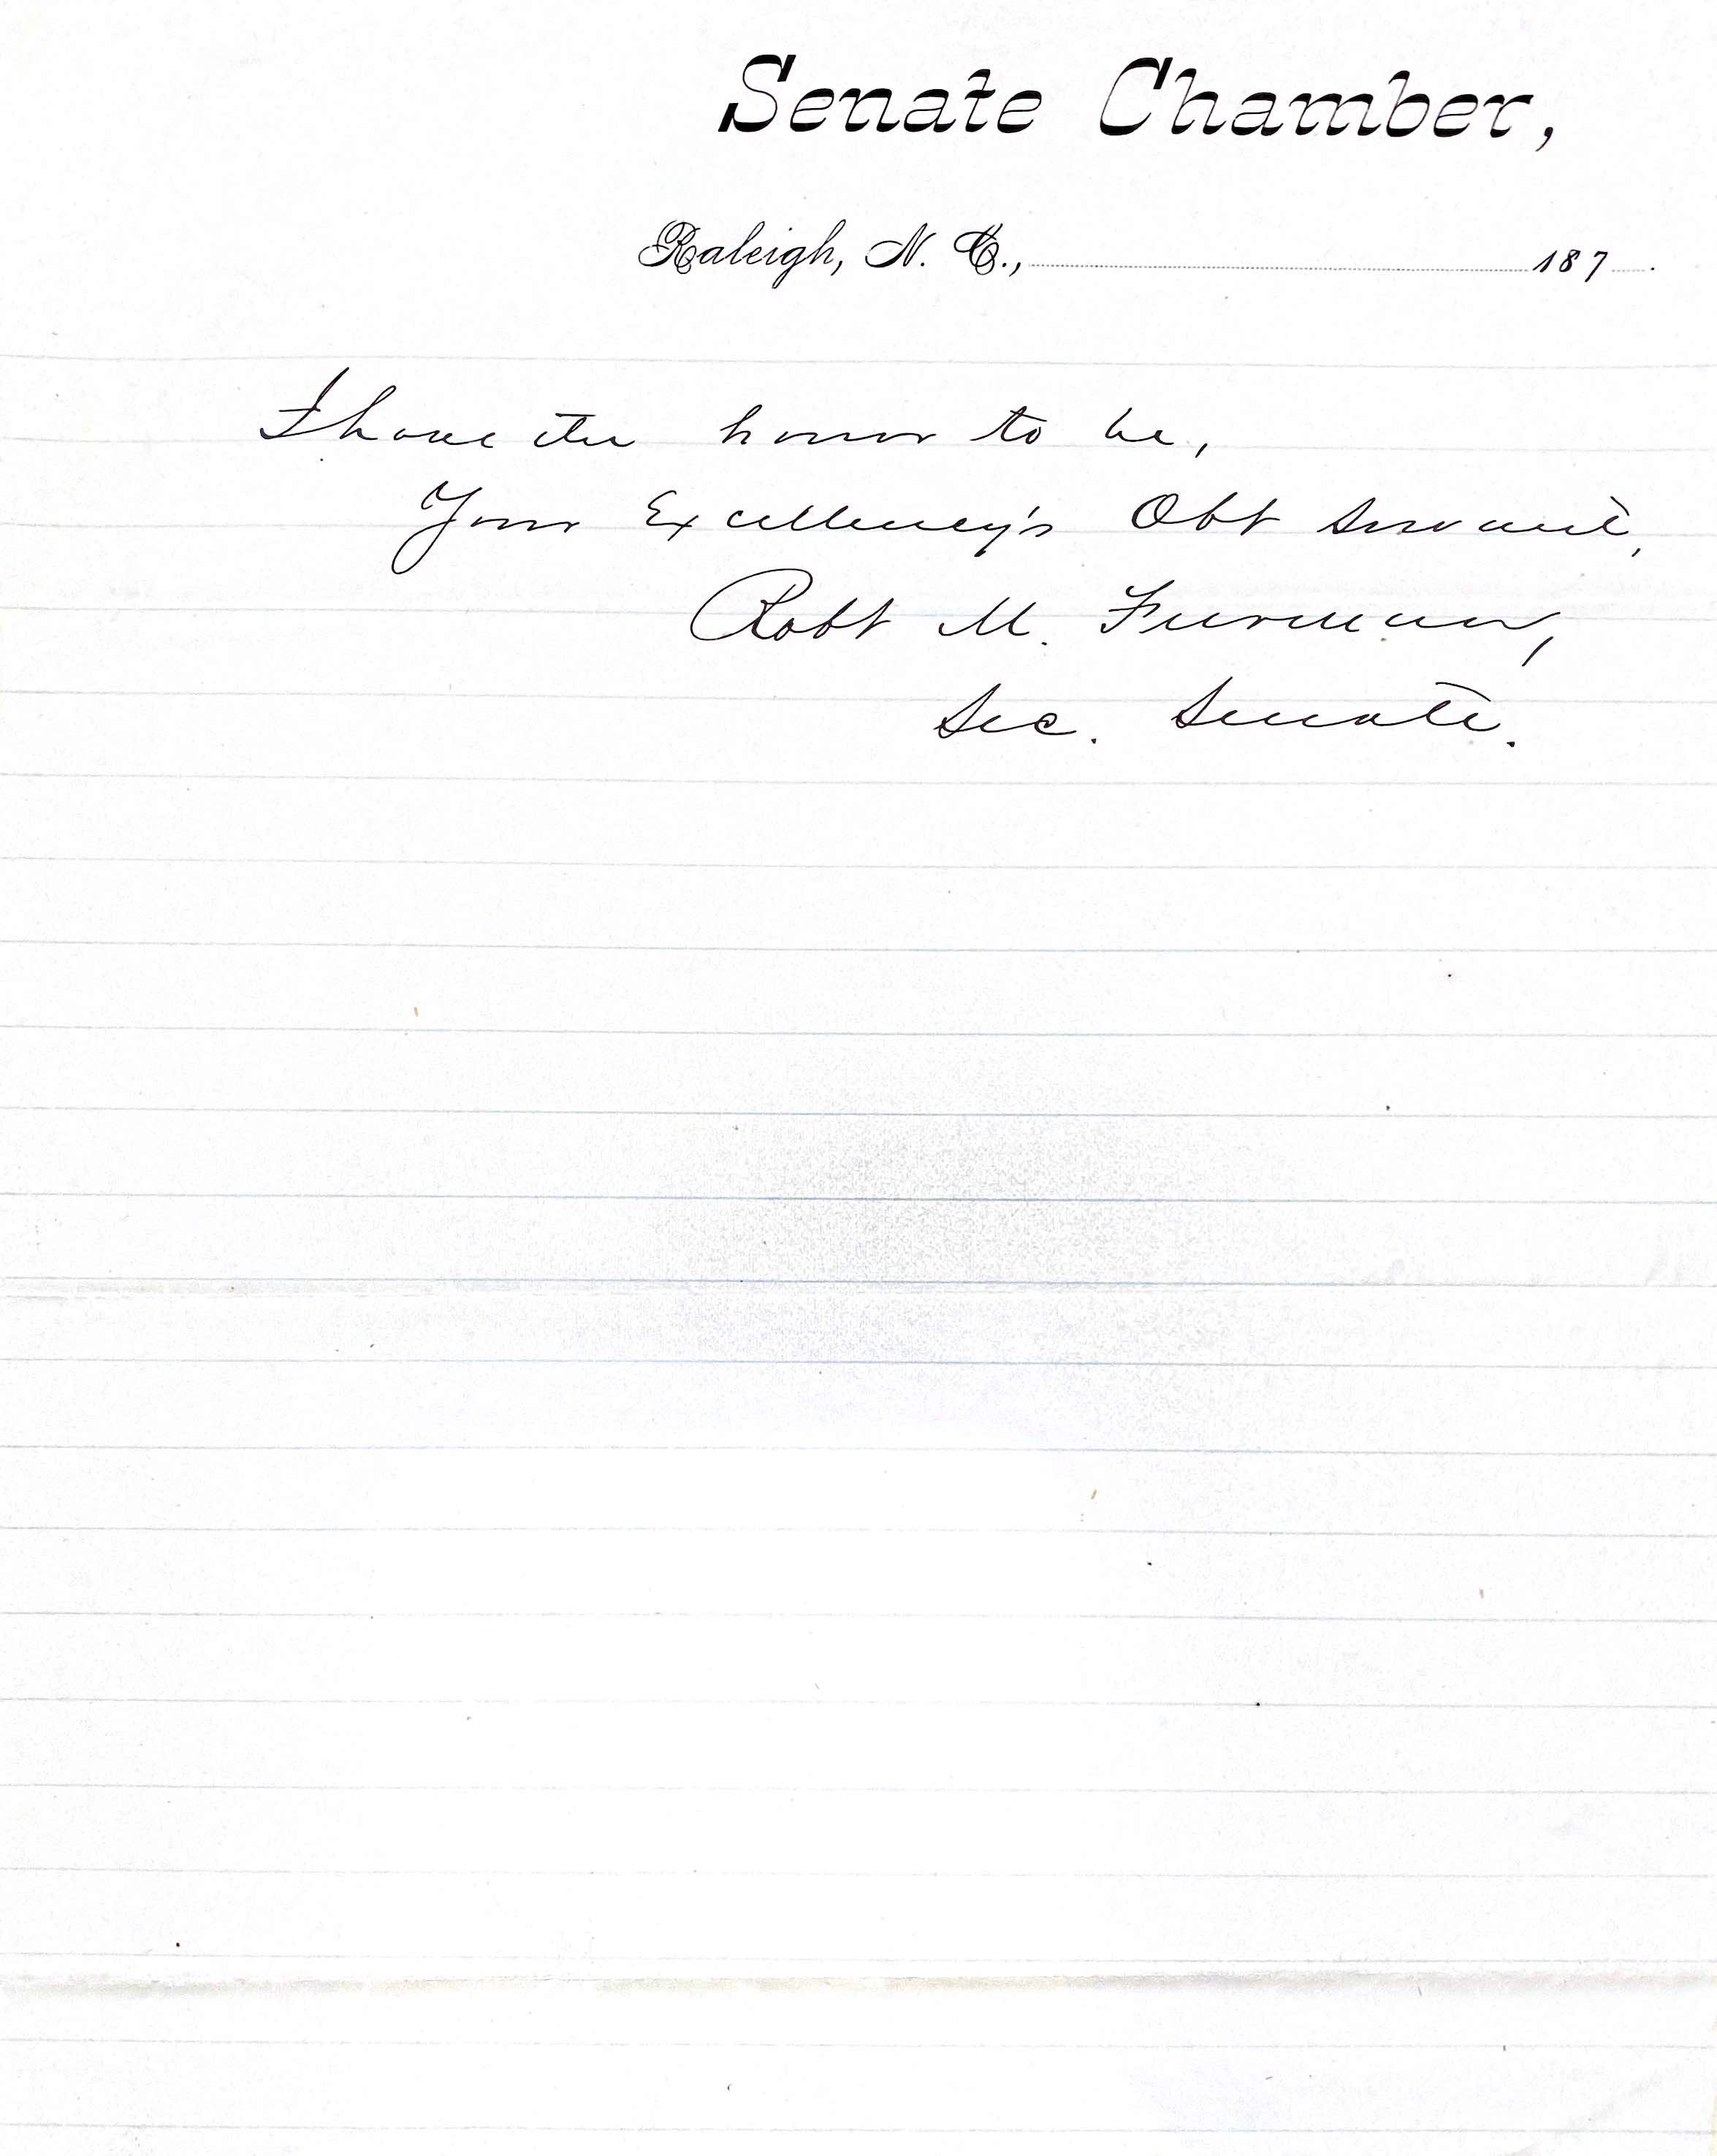 Senate Chamber,
Raleigh, N. C., 187 .
I have the honor to be,
Your Excellency's Obt Servant,
Robt M. Furman,
Sec. Senate.